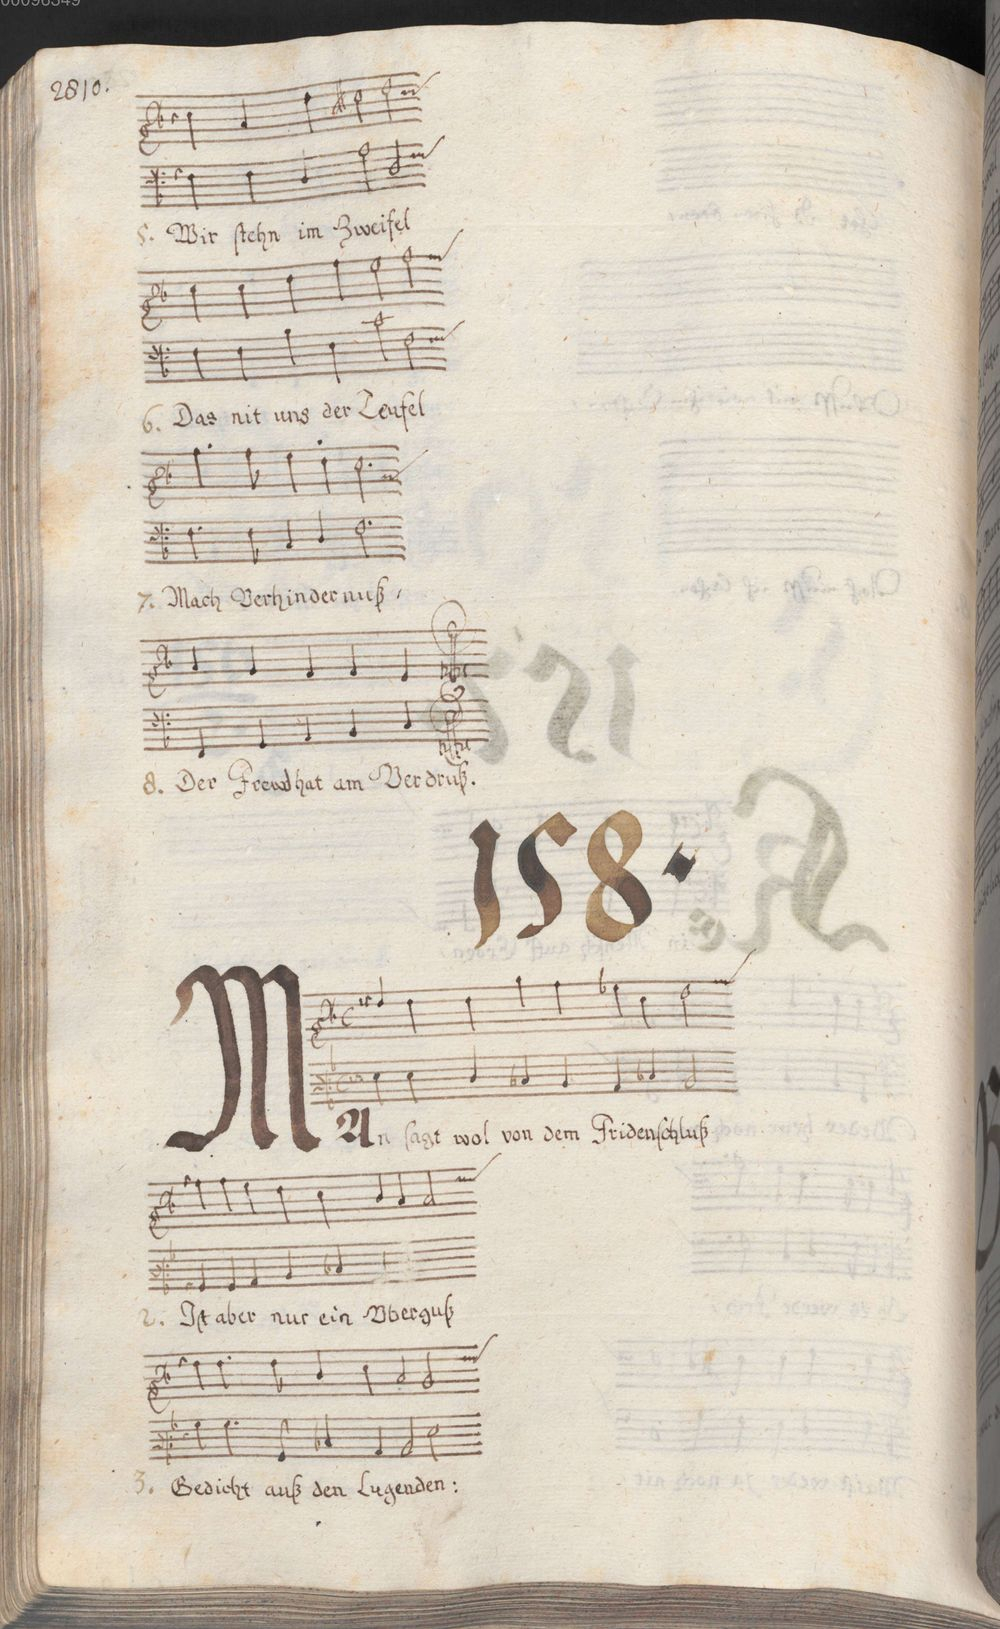 2810.
5. Wir stehn im Zweifel
6. Das nit uns der Teufel
7. Mach Verhindernuß,
8. Der Frewd hat am Verdruß.
158.
MAn sagt wol von dem Fridenschluß
2. Ist aber nur ein Vberguß
3. Gedicht auß den Lugenden: